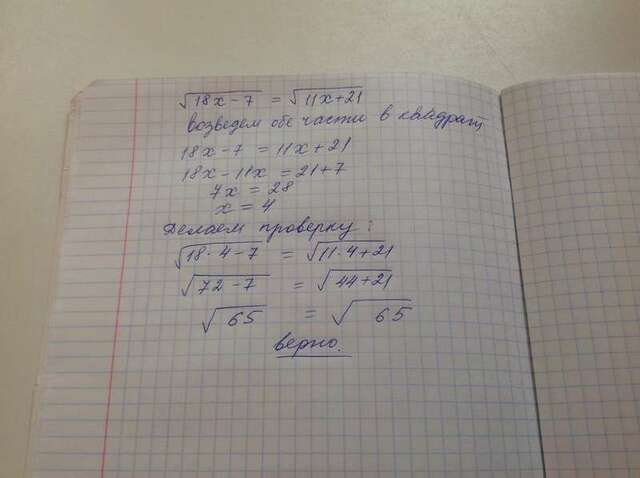 √18x-7 = √11x+21
возведем обе части в квадрат
18x-7 = 11x+21
18x-11x = 21+7
7x = 28
x = 4
Делаем проверку:
√18·4-7 = √11·4+21
√72-7 = √44+21
√65 = √65
верно.